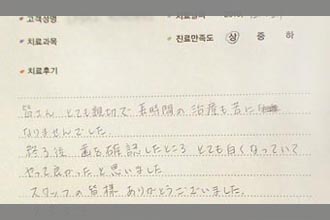 • 고객성명
• 치료과목
• 진료만족도 상 중 하
• 치료후기
皆さん とても親切で 長時間の 治療も苦に
なりませんでした。
終了後 歯を確認したところ とても白くなっていて
やって良かったと思いました
スタッフの皆様 ありがとうございました。